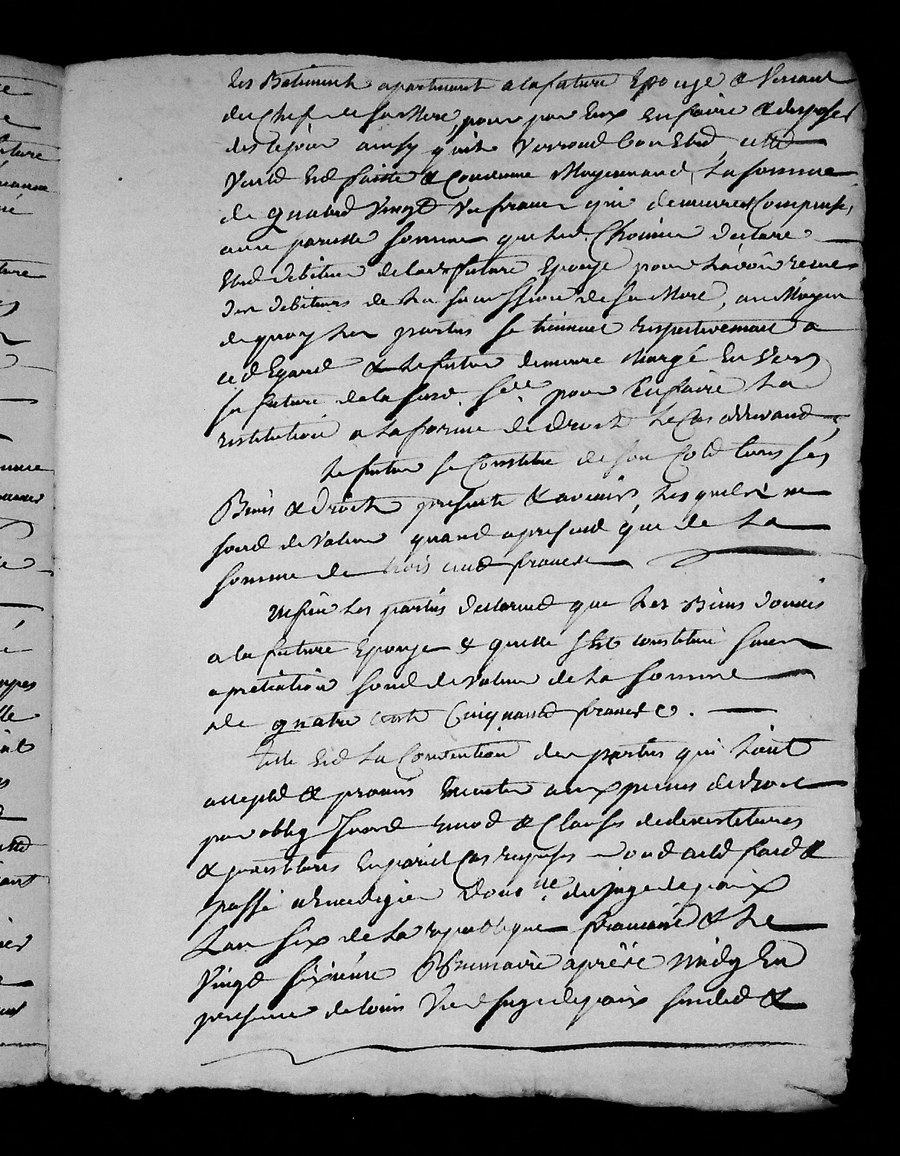 les Batiments apartenant a la future Epouze & Venant
du Chef de sa Mere, pour par Eux En faire & disposer
des ce jour ainsy qu'ils Verront bon Etre cette
Vente Est faitte & Convenue Moyennant La somme
de quatre Vingt francs qui demeure Compensé,
avec pareille somme que led. declare
Etre debiteur de lade. future Epouze pour L'avoir recue
des debiteurs de La succession de sa Mere, au Moyen
de quoy Les parties se tiennent respectivement a
cet Egard & le futur demeure chargé En Vers
sa future de la susd. pour En faire La
restitution a La forme de droit Le Cas arrivant,
Le futur se Constitue de son Coté tous ses
Biens & Droits presents & avenirs Lesquels ne
sont de Valeur quand a present que de La
somme de trois cent francs
Enfin Les parties declarent que Les Biens donnés
a la future Epouze & quelle s'est constitué sauf
apretiation sont de Valeur de La somme
de quatre cents Cinquante francs.
Telle Est La Convention des parties qui L'ont
accepté & promis Executer aux peines de droit
par oblig. & Clauses
& En pareil Cas requises Dont acte fait &
passé du juge de paix
L'an six de La republique francaise & Le
Vingt sixieme Brumaire après Midy En
presence de Louis juge de paix &